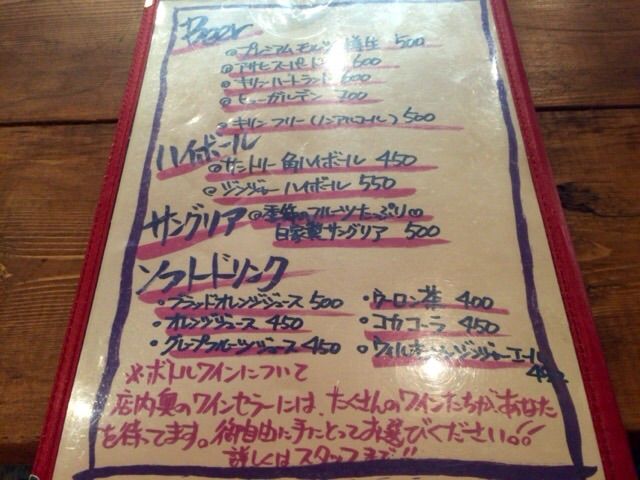 Beer
@プレミアムモルツ 樽生 500
@アサヒスーパードライ 600
@キリンハートランド 600
@ヒューガルデン 700
@キリンフリー(ノンアルコール) 500
ハイボール
@サントリー角ハイボール 450
@ジンジャーハイボール 550
サングリア @季節のフルーツたっぷり∞
自家製サングリア 500
ソフトドリンク
・ブラッドオレンジジュース 500 ・ウーロン茶 400
・オレンジジュース 450 ・コカコーラ 450
・グレープフルーツジュース 450 ・ウィルキンソンジンジャーエール
※ボトルワインについて
店内奥のワインセラーには、たくさんのワインたちが、あなた
を待ってます。御自由に手にとってお選びください。!!
詳しくはスタッフまで!!